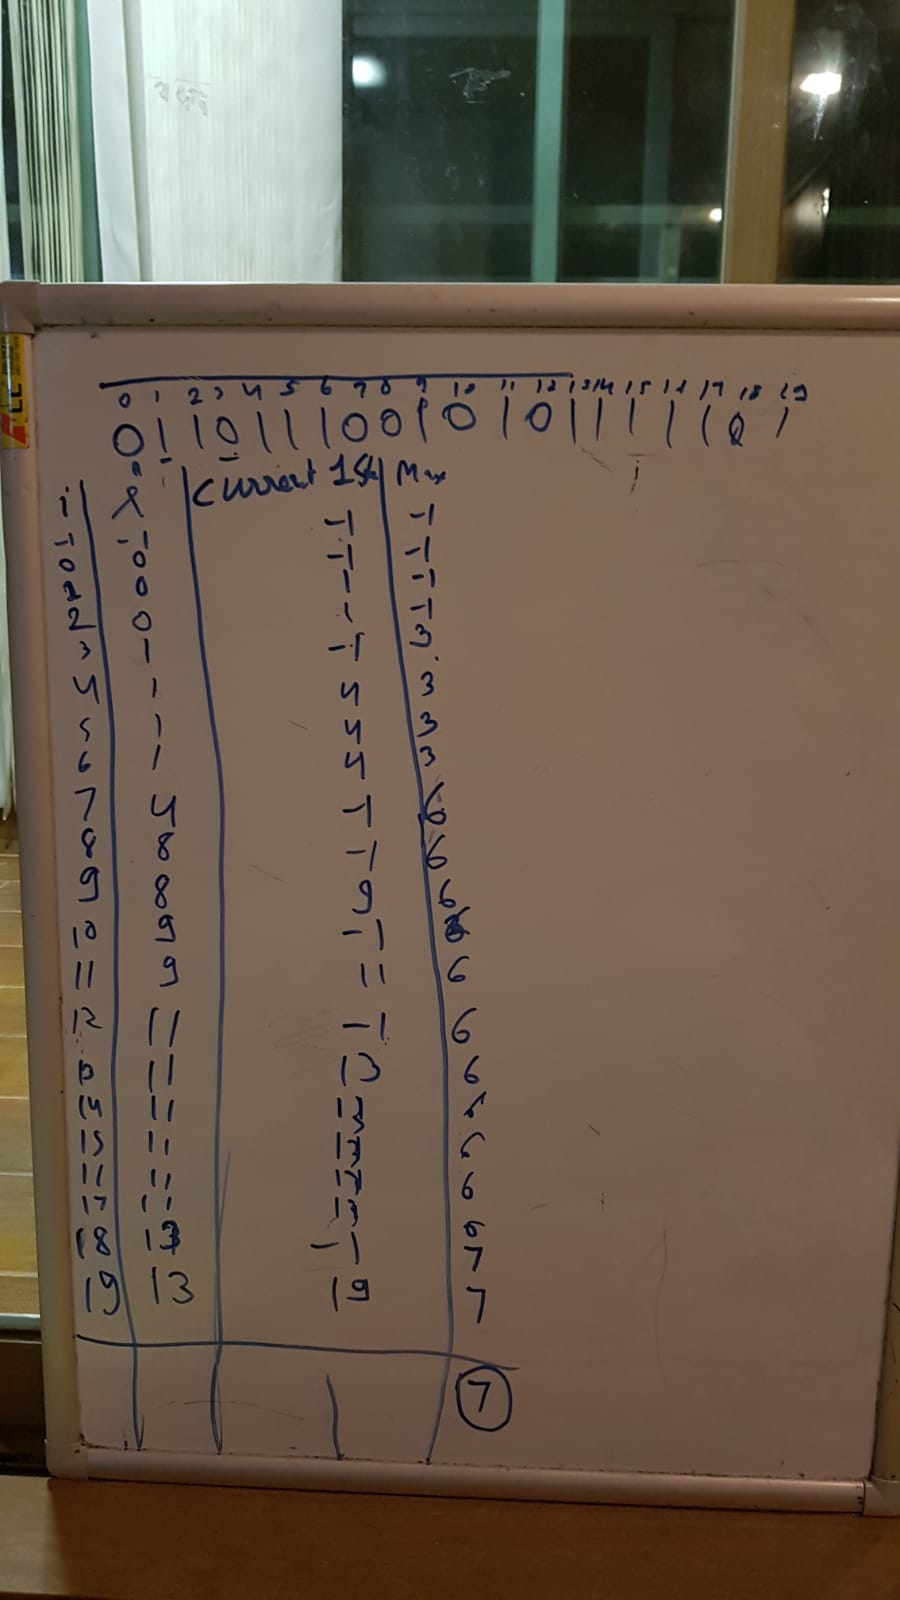 0 1 2 3 4 5 6 7 8 9 10 11 12 13 14 15 16 17 18 19
0 1 1 0 1 1 1 0 0 1 0 1 0 1 1 1 1 1 0 1
i l Current 1st Max
-1 -1 -1 -1
0 0 -1 -1
1 0 1 -1
2 0 1 -1
3 1 -1 3
4 1 4 3
5 1 4 3
6 1 4 3
7 4 -1 6
8 8 -1 6
9 8 9 6
10 9 -1 6
11 9 11 6
12 11 -1 6
13 11 13 6
14 11 13 6
15 11 13 6
11 11 13 6
17 11 13 6
18 13 -1 7
19 13 19 7
7